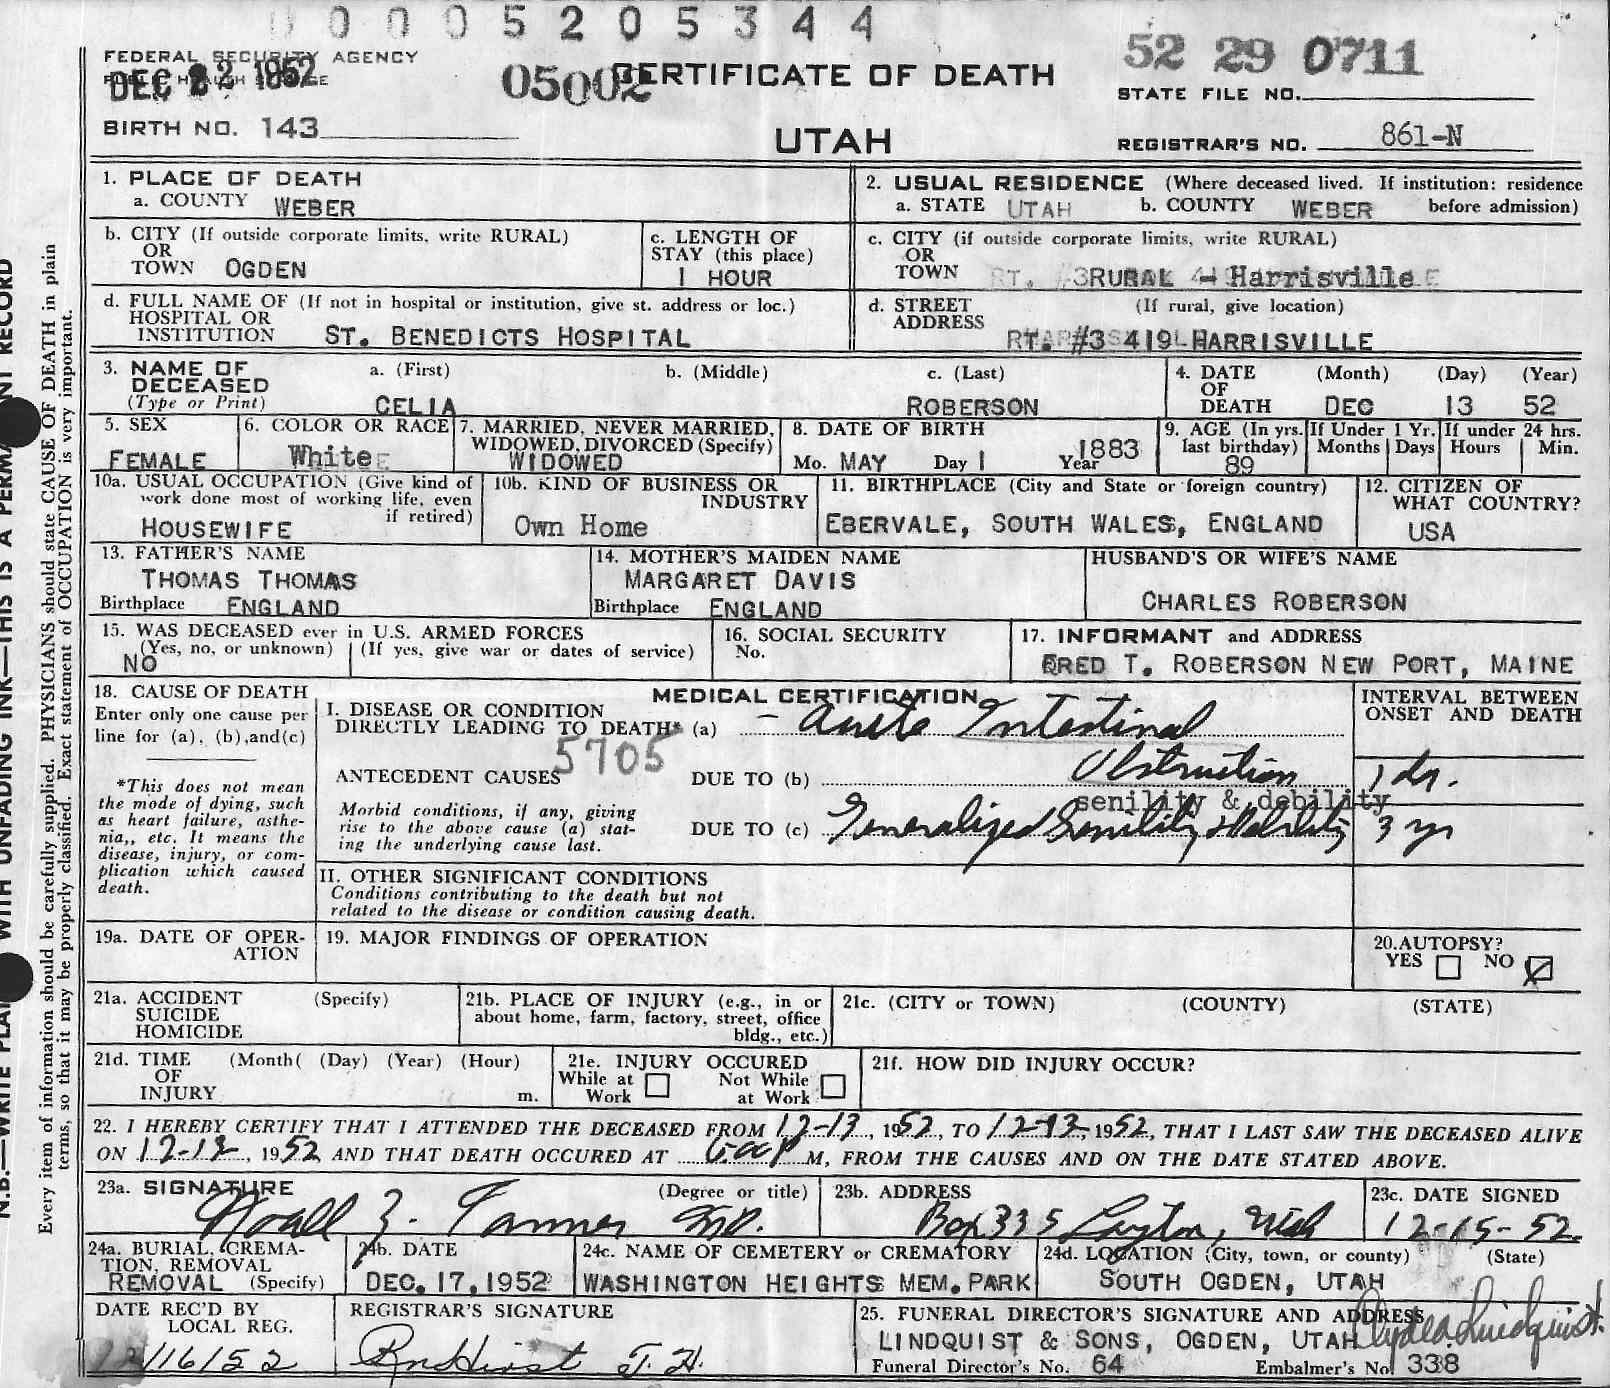 0 0 0 5 2 0 5 3 4 4
FEDERAL SECURITY AGENCY
DEC 22 1952
05002
CERTIFICATE OF DEATH
52 29 0711
STATE FILE NO.
BIRTH NO. 143
UTAH
REGISTRAR'S NO. 861-N
1. PLACE OF DEATH
a. COUNTY WEBER
2. USUAL RESIDENCE (Where deceased lived. If institution: residence before admission)
a. STATE UTAH b. COUNTY WEBER
b. CITY (If outside corporate limits, write RURAL)
OR
TOWN OGDEN
c. LENGTH OF
STAY (this place)
1 HOUR
c. CITY (if outside corporate limits, write RURAL)
OR
TOWN RURAL - Harrisville
d. FULL NAME OF (If not in hospital or institution, give st. address or loc.)
HOSPITAL OR
INSTITUTION ST. BENEDICTS HOSPITAL
d. STREET (If rural, give location)
ADDRESS
RT. #3 419 HARRISVILLE
3. NAME OF
DECEASED
(Type or Print)
a. (First) b. (Middle) c. (Last)
CELIA ROBERSON
4. DATE (Month) (Day) (Year)
OF
DEATH DEC 13 52
5. SEX
FEMALE
6. COLOR OR RACE
White
7. MARRIED, NEVER MARRIED,
WIDOWED, DIVORCED (Specify)
WIDOWED
8. DATE OF BIRTH
Mo. MAY Day 1 Year 1883
9. AGE (In yrs.
last birthday)
89
If Under 1 Yr.
Months Days
If under 24 hrs.
Hours Min.
10a. USUAL OCCUPATION (Give kind of
work done most of working life, even
if retired)
HOUSEWIFE
10b. KIND OF BUSINESS OR
INDUSTRY
Own Home
11. BIRTHPLACE (City and State or foreign country)
EBERVALE, SOUTH WALES, ENGLAND
12. CITIZEN OF
WHAT COUNTRY?
USA
13. FATHER'S NAME
THOMAS THOMAS
Birthplace ENGLAND
14. MOTHER'S MAIDEN NAME
MARGARET DAVIS
Birthplace ENGLAND
HUSBAND'S OR WIFE'S NAME
CHARLES ROBERSON
15. WAS DECEASED ever in U.S. ARMED FORCES
(Yes, no, or unknown) (If yes, give war or dates of service)
NO
16. SOCIAL SECURITY
No.
17. INFORMANT and ADDRESS
FRED T. ROBERSON NEW PORT, MAINE
18. CAUSE OF DEATH
Enter only one cause per
line for (a), (b), and (c)
*This does not mean
the mode of dying, such
as heart failure, asthe-
nia,, etc. It means the
disease, injury, or com-
plication which caused
death.
MEDICAL CERTIFICATION
I. DISEASE OR CONDITION
DIRECTLY LEADING TO DEATH* (a) Acute Intestinal
5705
ANTECEDENT CAUSES DUE TO (b) Obstruction
senility & debility
Morbid conditions, if any, giving
rise to the above cause (a) stat-
ing the underlying cause last.
DUE TO (c) Generalized Senility & debility
INTERVAL BETWEEN
ONSET AND DEATH
1 da.
3 yr
II. OTHER SIGNIFICANT CONDITIONS
Conditions contributing to the death but not
related to the disease or condition causing death.
19a. DATE OF OPER-
ATION
19. MAJOR FINDINGS OF OPERATION
20. AUTOPSY?
YES NO
21a. ACCIDENT (Specify)
SUICIDE
HOMICIDE
21b. PLACE OF INJURY (e.g., in or
about home, farm, factory, street, office
bldg., etc.)
21c. (CITY or TOWN) (COUNTY) (STATE)
21d. TIME (Month( (Day) (Year) (Hour)
OF
INJURY m.
21e. INJURY OCCURED
While at Work Not While at Work
21f. HOW DID INJURY OCCUR?
22. I HEREBY CERTIFY THAT I ATTENDED THE DECEASED FROM 12-13, 1952, TO 12-13, 1952, THAT I LAST SAW THE DECEASED ALIVE
ON 12-13, 1952 AND THAT DEATH OCCURED AT M, FROM THE CAUSES AND ON THE DATE STATED ABOVE.
23a. SIGNATURE (Degree or title)
Noall Z. Tanner M.D.
23b. ADDRESS
Box 335 Layton, Utah
23c. DATE SIGNED
12-15-52.
24a. BURIAL, CREMA-
TION, REMOVAL
REMOVAL (Specify)
24b. DATE
DEC. 17, 1952
24c. NAME OF CEMETERY or CREMATORY
WASHINGTON HEIGHTS MEM. PARK
24d. LOCATION (City, town, or county) (State)
SOUTH OGDEN, UTAH
DATE REC'D BY
LOCAL REG.
12/16/52
REGISTRAR'S SIGNATURE
25. FUNERAL DIRECTOR'S SIGNATURE AND ADDRESS
Clyde Lindquist
LINDQUIST & SONS, OGDEN, UTAH
Funeral Director's No. 64 Embalmer's No 338
Every item of information should be carefully supplied. PHYSICIANS should state CAUSE OF DEATH in plain
terms, so that it may be properly classified. Exact statement of OCCUPATION is very important.
WITH UNFADING INK—THIS IS A
RECORD